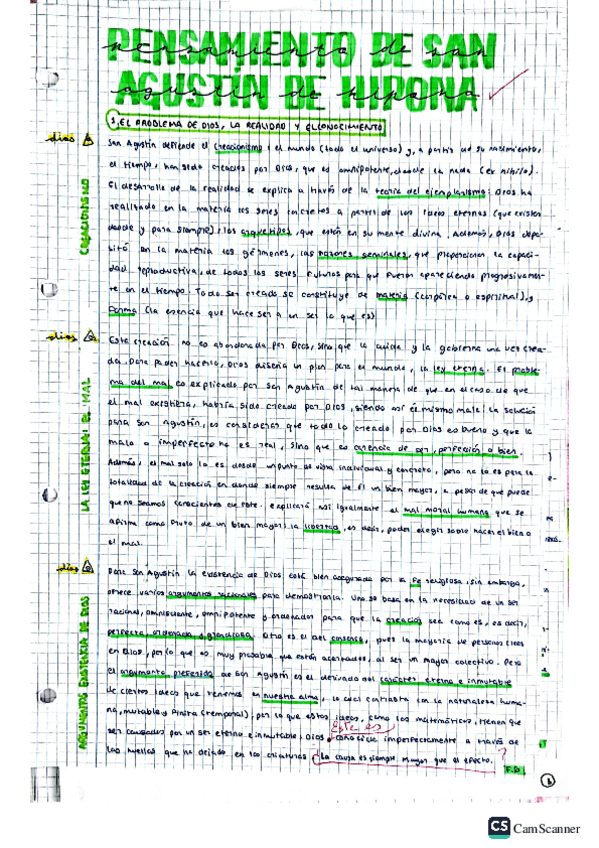 PENSAMIENTO DE SAN
AGUSTÍN DE HIPONA
1. EL PROBLEMA DE DIOS, LA REALIDAD Y EL CONOCIMIENTO
dios
CREACIONISMO
San Agustín defiende el creacionismo: el mundo (todo el universo) y, a partir de su nacimiento,
el tiempo, han sido creados por Dios, que es omnipotente, desde la nada (ex nihilo).
El desarrollo de la realidad se explica a través de la teoría del ejemplarismo: Dios ha
realizado en la materia los seres concretos a partir de las ideas eternas (que existen
desde y para siempre), los arquetipos, que están en su mente divina. Además, Dios depo-
sitó en la materia los gérmenes, las razones seminales, que proporcionan la capaci-
dad reproductiva, de todos los seres futuros para que fueran apareciendo progresivamen-
te en el tiempo. Todo ser creado se constituye de materia (corpórea o espiritual), y
forma (la esencia que hace ser a un ser lo que es)
dios
LA LEY ETERNA: EL MAL
Esta creación no es abandonada por Dios, sino que la cuida y la gobierna una vez crea-
da. Para poder hacerlo, Dios diseña un plan para el mundo, la ley eterna. El proble-
ma del mal es explicado por San Agustín de tal manera de que en el caso de que
el mal existiera, habría sido creado por Dios, siendo así él mismo malo. La solución
para San Agustín, es considerar que todo lo creado por Dios es bueno y que lo
malo o imperfecto no es real, sino que es carencia de ser, perfección o bien.
Además, el mal solo lo es desde un punto de vista individual y concreto, pero no lo es para la
totalidad de la creación en donde siempre resulta de él un bien mayor, a pesar de que puede
que no seamos conscientes de este. explicará así igualmente el mal moral humano que se
afirma como fruto de un bien mayor: la libertad, es decir, poder elegir sobre hacer el bien o
el mal.
dios
ARGUMENTOS EXISTENCIA DE DIOS
Para San Agustín la existencia de Dios está bien asegurada por la fe religiosa, sin embargo,
ofrece varios argumentos racionales para demostrarla. Uno se basa en la necesidad de un ser
racional, omnisciente, omnipotente y ordenador para que la creación sea como es, es decir,
perfecta, ordenada y grandiosa. Otro es el del consenso, pues la mayoría de personas creen
en Dios, por lo que es muy probable que estén acertados, al ser un mayor colectivo. Pero
el argumento preferido de San Agustín es el derivado del carácter eterno e inmutable
de ciertas ideas que tenemos en nuestra alma, lo cual contrasta con la naturaleza huma-
na, mutable y finita (temporal), por lo que estas ideas, como las matemáticas, tienen que
este es
ser causadas por un ser eterno e inmutable, Dios. conocible imperfectamente a través de
las huellas que ha dejado en las criaturas (La causa es siempre mayor que el efecto. ?
F.D.
1
CS CamScanner